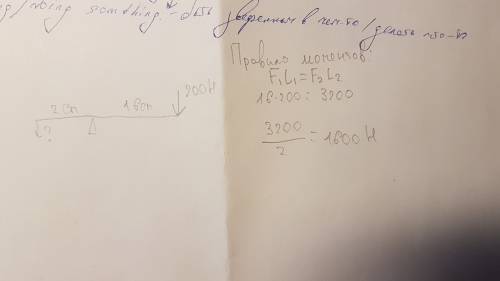 / doing something - быть уверенным в чем-то / делать что-то
Правило моментов:
F₁L₁=F₂L₂
16·200 = 3200
3200
2
= 1600 Н
200Н
2см 16см
?